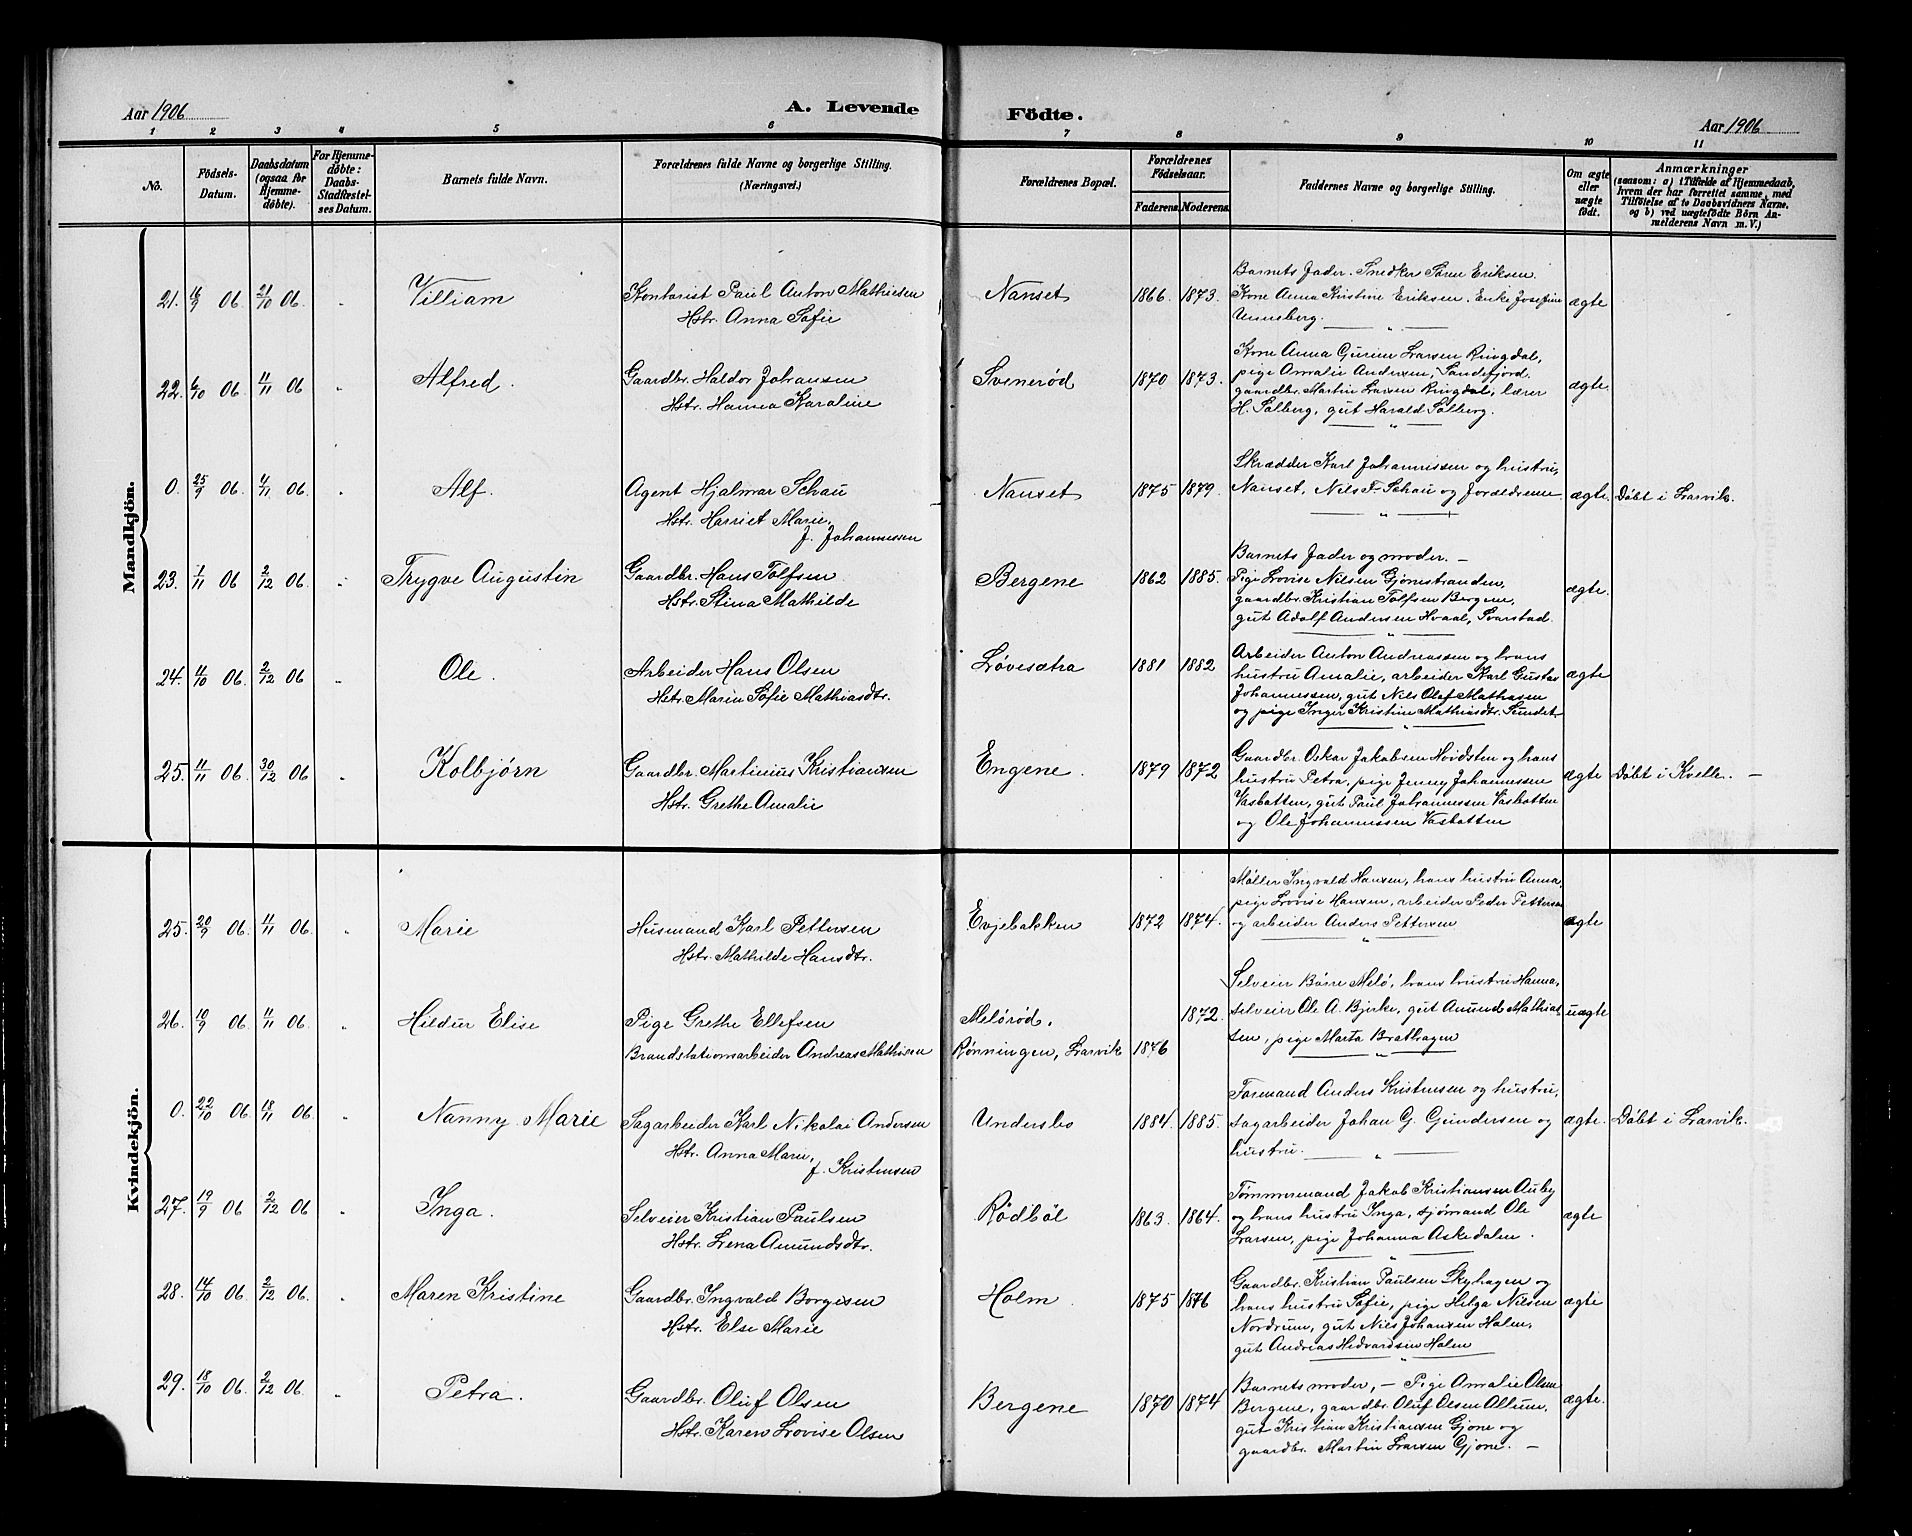 Aar 1906
A. Levende Födte.
Aar 1906
1 2 3 4 5 6 7 8 9 10 11
No.
Födsels-Datum.
Daabsdatum (ogsaa for Hjemme-döbte).
For Hjemme-döbte: Daabs-Stadfæstel-ses Datum.
Barnets fulde Navn.
Forældrenes fulde Navne og borgerlige Stilling. (Næringsvei.)
Forældrenes Bopæl.
Forældrenes Födselsaar.
Faderens. Moderens.
Faddernes Navne og borgerlige Stilling.
Om ægte eller uægte födt.
Anmærkninger
(saasom: a) i Tilfælde af Hjemmedaab,
hvem der har forrettet samme, med
Tilföielse af to Daabsvidners Navne,
og b) ved uægtefödte Börn An-
melderens Navn m. V.)
Mandkjön.
21. 16/9 06. 21/10 06. " William
Kontorist Paul Anton Mathiesen
Hstr. Anna Sofie
Nanset 1866. 1873.
Barnets Fader. Snedker Søren Eriksen.
Kone Anna Kristine Eriksen. Enke Josefine
Unneberg.
ægte
22. 6/10 06. 11/11 06 " Alfred.
Gaardbr. Haldor Johansen
Hstr. Hanna Karoline
Svenerød 1870 1873.
Kone Anna Gurine Larsen Ringdal,
pige Amalie Andersen, Sandefjord.
gaardbr. Martin Larsen Ringdal, lærer
H. Solberg, gut Harald Solberg.
ægte
0. 25/9 06. 4/11 06. " Alf.
Agent Hjalmar Schau
Hstr. Harriet Marie,
f. Johannessen
Nanset 1875 1879.
Skrædder Karl Johannessen og hustru,
Nanset, Nils F. Schau og forældrene
ægte. Döbt i Larvik.
23. 1/11 06 2/12 06. " Trygve Augustin
Gaardbr. Hans Tolfsen.
Hstr. Stina Mathilde
Bergene 1862 1885.
Barnets fader og moder. —
Pige Lovise Nilsen Gjonestranden,
gaardbr. Kristian Tolfsen Bergene,
gut Adolf Andersen Hvaal, Svarstad.
ægte.
24. 11/10 06. 2/12 06 " Ole.
Arbeider Hans Olsen
Hstr. Maren Sofie Mathiasdtr.
Løvesætra 1881 1882
Arbeider Anton Andreassen og hans
hustru Amalie, arbeider Karl Gustav
Johannessen, gut Nils Olaf Mathasen
og pige Inger Kristine Mathiasdtr. Sundet
ægte
25. 11/11 06. 30/12 06 " Kolbjørn
Gaardbr. Martinius Kristiansen
Hstr. Grethe Amalie
Engene. 1879 1872
Gaardbr. Oskar Jakobsen Hvidsten og hans
hustru Petra, pige Jenny Johannessen
Vasbotten, gut Paul Johannessen Vasbotten
og Ole Johannessen Vasbotten
ægte Döbt i Kvelle. —
Kvindekjön.
25. 20/9 06. 11/11 06. " Marie
Husmand Karl Pettersen
Hstr. Mathilde Hansdtr.
Evjebakken 1872 1874.
Møller Ingvald Hansen, hans hustru Anna,
pige Lovise Hansen, arbeider Peder Pettersen
og arbeider Anders Pettersen
ægte
26. 10/9 06 11/11 06. " Hildur Elise
Pige Grethe Ellefsen
Brandstationsarbeider Andreas Mathisen
Melørød. 1872.
Rønningen, Larvik 1846
Selveier Børre Melø, hans hustru Hanna,
selveier Ole A. Bjerke, gut Amund Mathias-
sen, pige Marta Brathagen
uægte
0. 22/10 06. 18/11 06. " Nanny Marie
Sagarbeider Karl Nikolai Andersen
Hstr. Anna Marie,
f. Kristensen
Undersbo 1884. 1885.
Formand Anders Kristensen og hustru,
sagarbeider Johan G. Gundersen og
hustru.
ægte. Döbt i Larvik.
27. 19/9 06 2/12 06 " Inga.
Selveier Kristian Paulsen
Hstr. Lena Amundsdtr.
Rødbøl 1863. 1864.
Tømmermand Jakob Kristiansen Auby
og hans hustru Inga, sjømand Ole
Larsen, pige Johanna Askedalen.
ægte
28. 14/10 06 2/12 06. " Maren Kristine
Gaardbr. Ingvald Borgesen
Hstr. Else Marie
Holm 1875 1876
Gaardbr. Kristian Paulsen Skyhagen og
hans hustru Sofie, pige Helga Nilsen
Nordrum, gut Nils Johansen Holm,
gut Andreas Hedvardsen Holm
ægte
29. 18/10 06. 2/12 06. " Petra.
Gaardbr. Oluf Olsen
Hstr. Karen Lovise Olsen
Bergene 1870 1874
Barnets moder, — Pige Amalie Olsen
Bergene, gaardbr. Oluf Olsen Allum,
gut Kristian Kristiansen Gjone og
gaardbr. Martin Larsen Gjone. —
ægte.